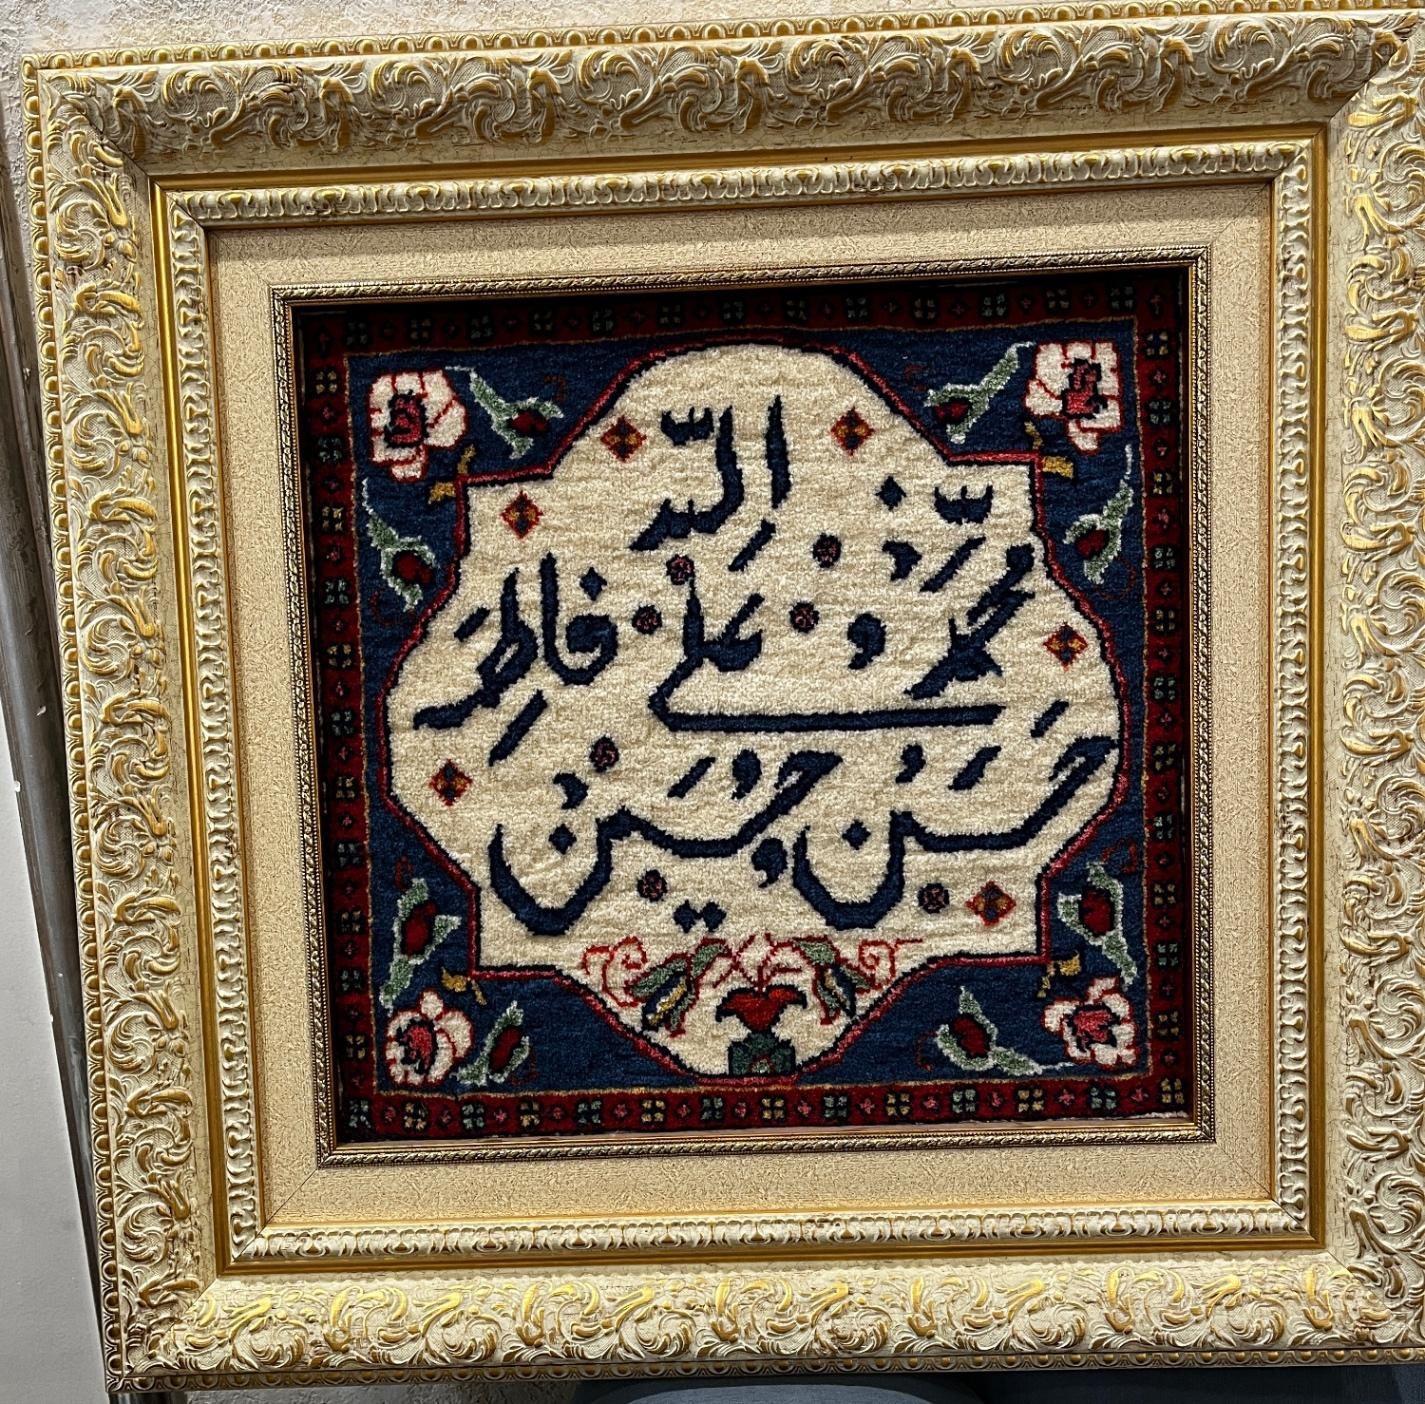 الله
محمد و علی فاطمه
حسن و حسین